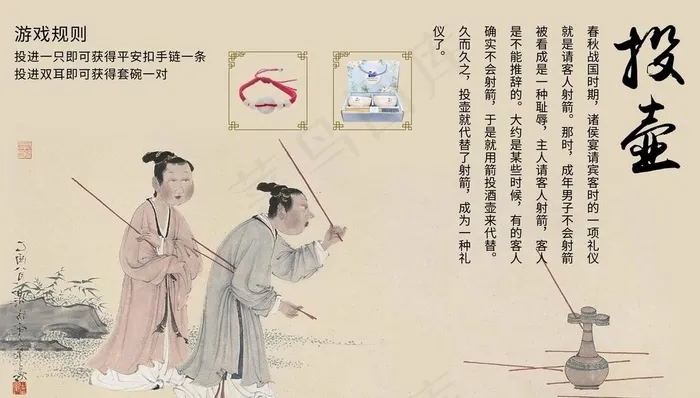 投壶
春秋战国时期，诸侯宴请宾客时的一项礼仪
就是请客人射箭。那时，成年男子不会射箭
被看成是一种耻辱，主人请客人射箭，客人
是不能推辞的。大约是某些时候，有的客人
确实不会射箭，于是就用箭投酒壶来代替。
久而久之，投壶就代替了射箭，成为一种礼
仪了。
游戏规则
投进一只即可获得平安扣手链一条
投进双耳即可获得套碗一对